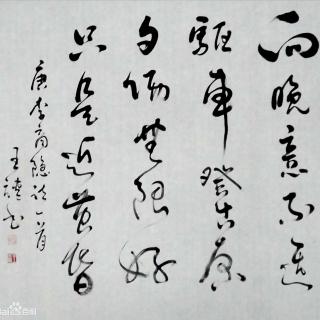 向晚意不适
驱车登古原
夕阳无限好
只是近黄昏
唐李商隐诗一首
王